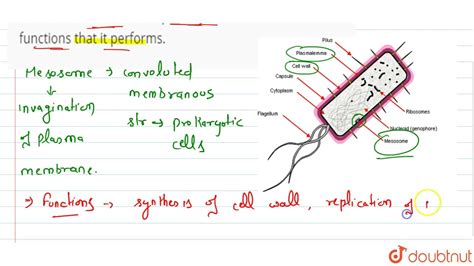 functions that it performs.
Mesosome → convoluted
membranous
invagination
str → prokaryotic
of plasma
cells
membrane.
Pilus
Plasmalemma
Cell wall
Capsule
Cytoplasm
Flagellum
Ribosomes
Nucleoid (genophore)
Mesosome
⇒ Functions → synthesis of cell wall, replication of
doubtnut